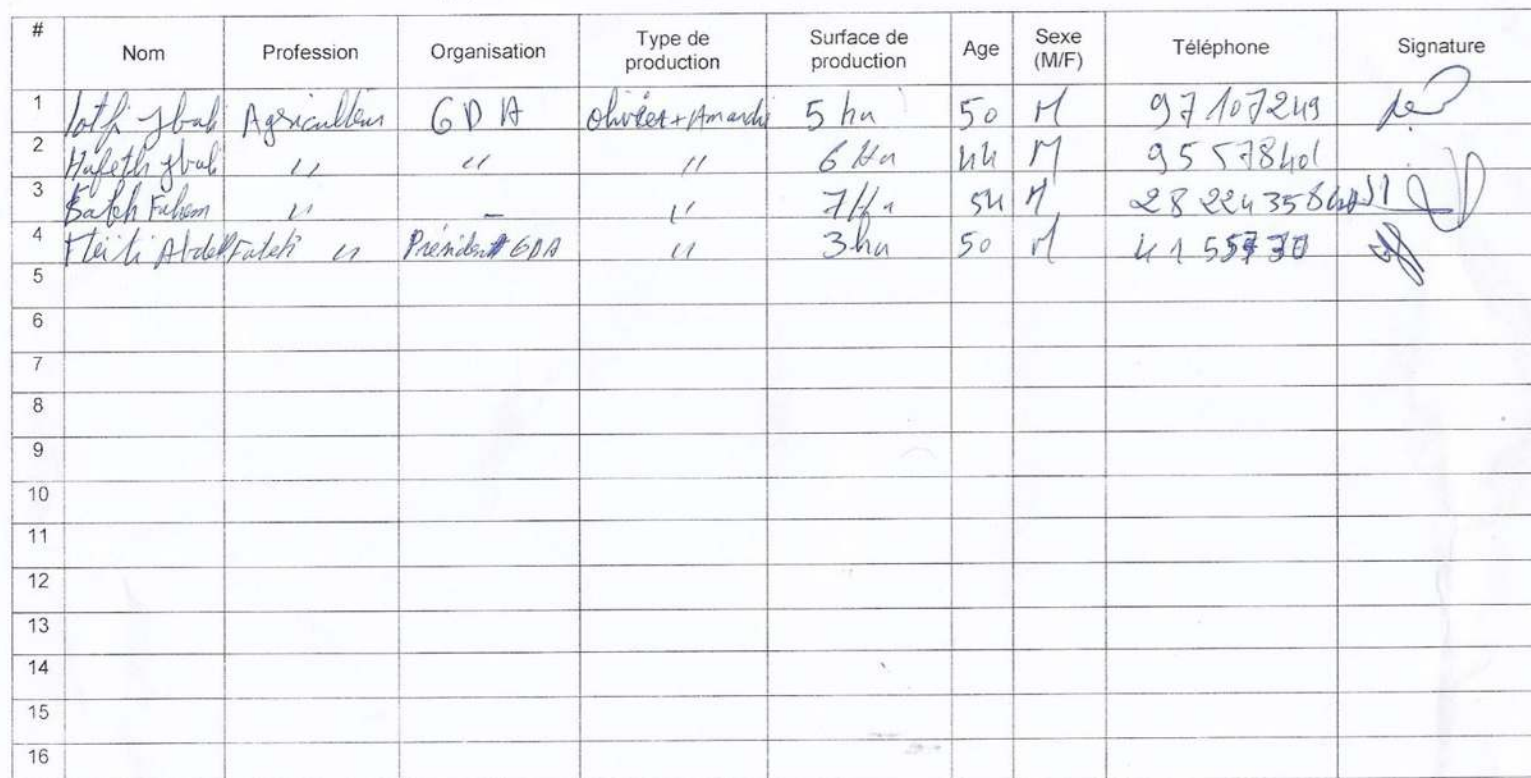 # Nom Profession Organisation Type de production Surface de production Age Sexe (M/F) Téléphone Signature
1 lotfi Jbali Agriculteur GDA olivier + Amandi 5 ha 50 M 97107249
2 Hafeth Jbali " " " 6 Ha 44 M 95578401
3 Fahem " - " 7 Ha 54 M
4 Abdel Fateh " Président GDA " 3 ha 50 M
5
6
7
8
9
10
11
12
13
14
15
16